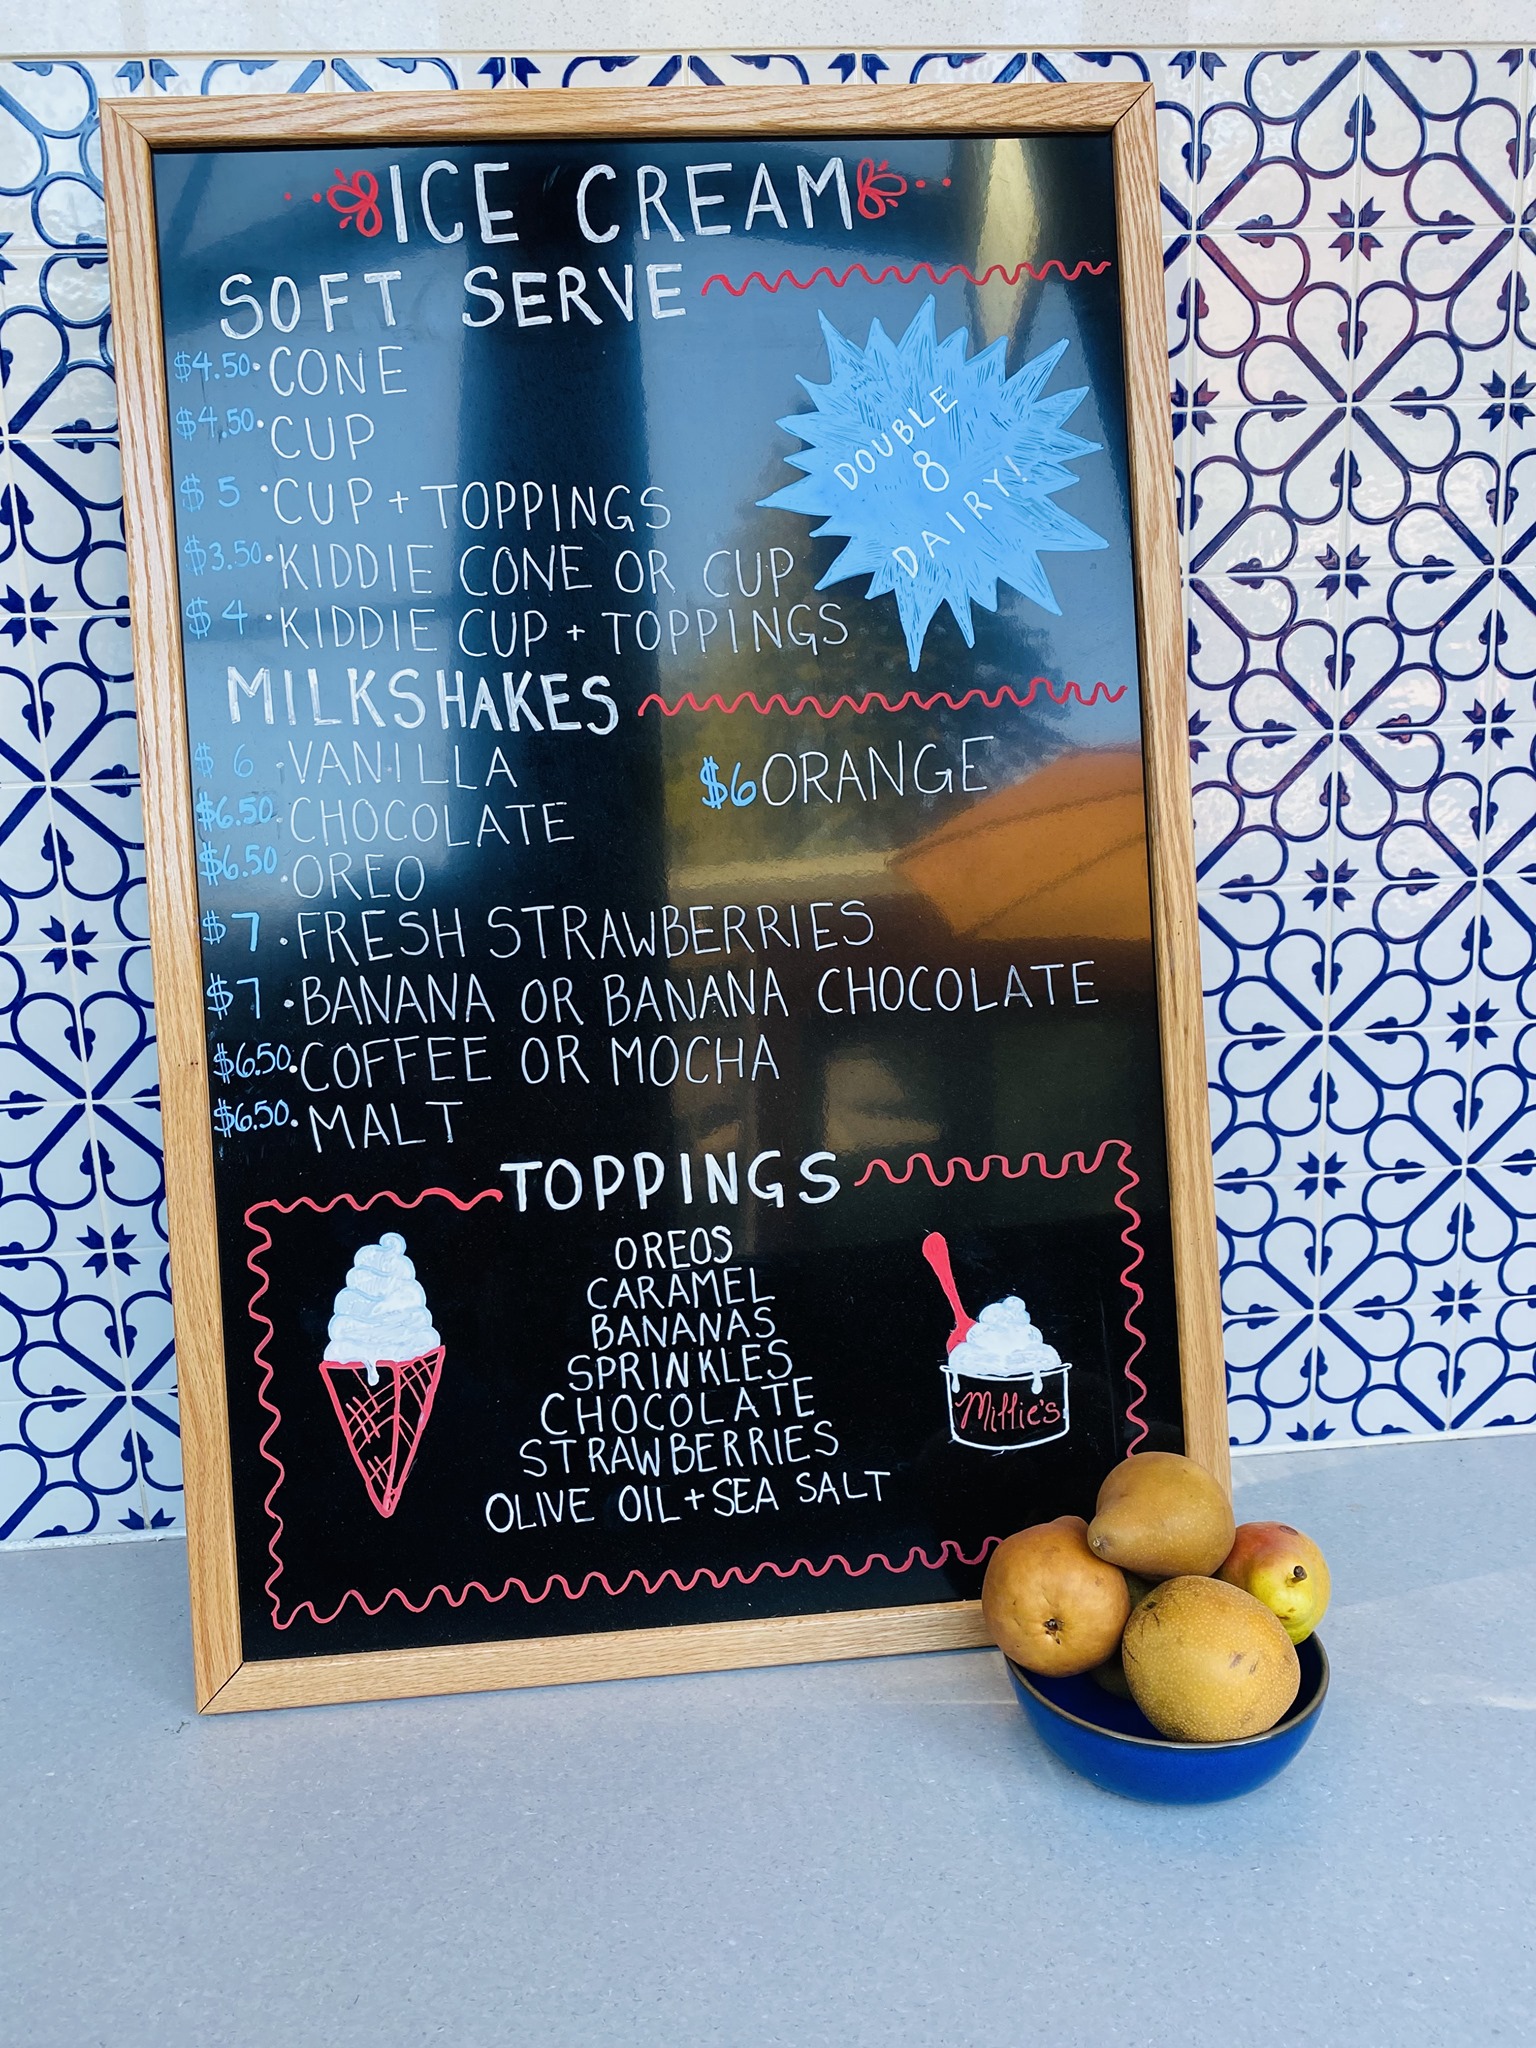 ICE CREAM
SOFT SERVE
$4.50 · CONE
$4.50 · CUP
$5 · CUP + TOPPINGS
$3.50 · KIDDIE CONE OR CUP
$4 · KIDDIE CUP + TOPPINGS
DOUBLE
8
DAIRY!
MILKSHAKES
$6 · VANILLA
$6 ORANGE
$6.50 · CHOCOLATE
$6.50 · OREO
$7 · FRESH STRAWBERRIES
$7 · BANANA OR BANANA CHOCOLATE
$6.50 · COFFEE OR MOCHA
$6.50 · MALT
TOPPINGS
OREOS
CARAMEL
BANANAS
SPRINKLES
CHOCOLATE
STRAWBERRIES
OLIVE OIL + SEA SALT
Millie's